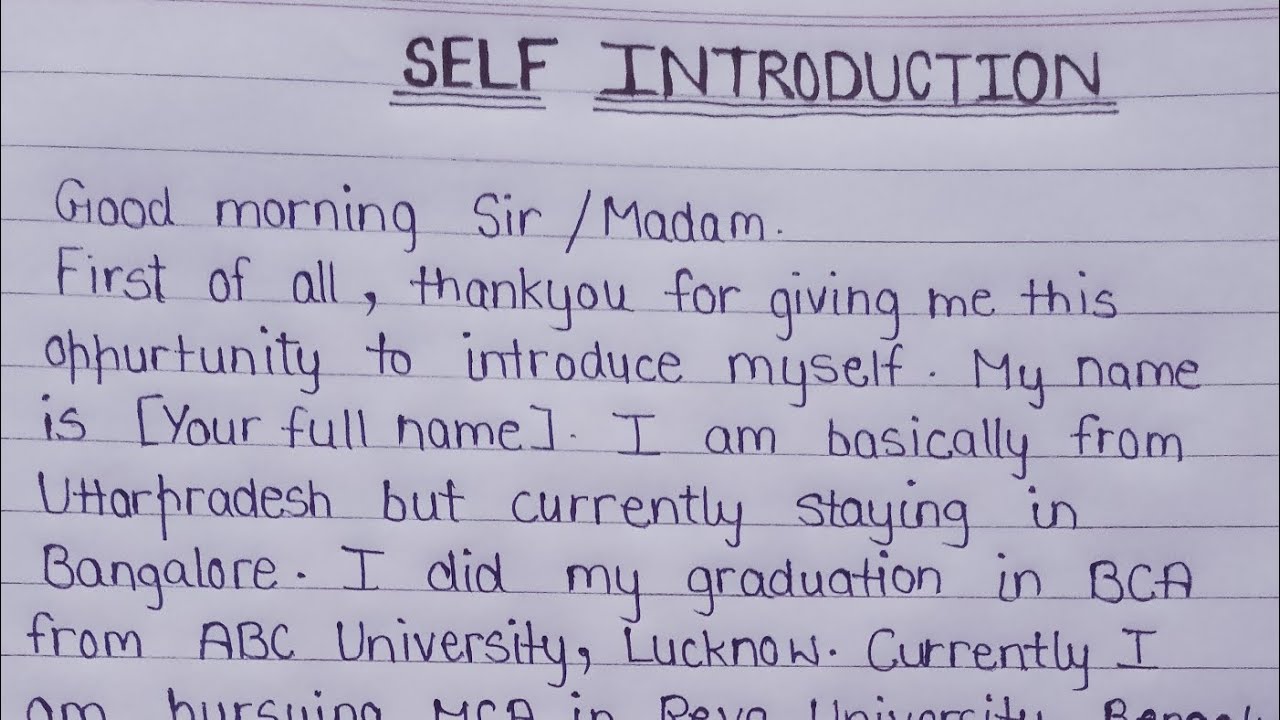 SELF INTRODUCTION
Good morning Sir / Madam.
First of all, thankyou for giving me this
oppurtunity to introduce myself. My name
is [Your full name]. I am basically from
Uttarpradesh but currently staying in
Bangalore. I did my graduation in BCA
from ABC University, Lucknow. Currently I
am pursuing MCA in Reva University,